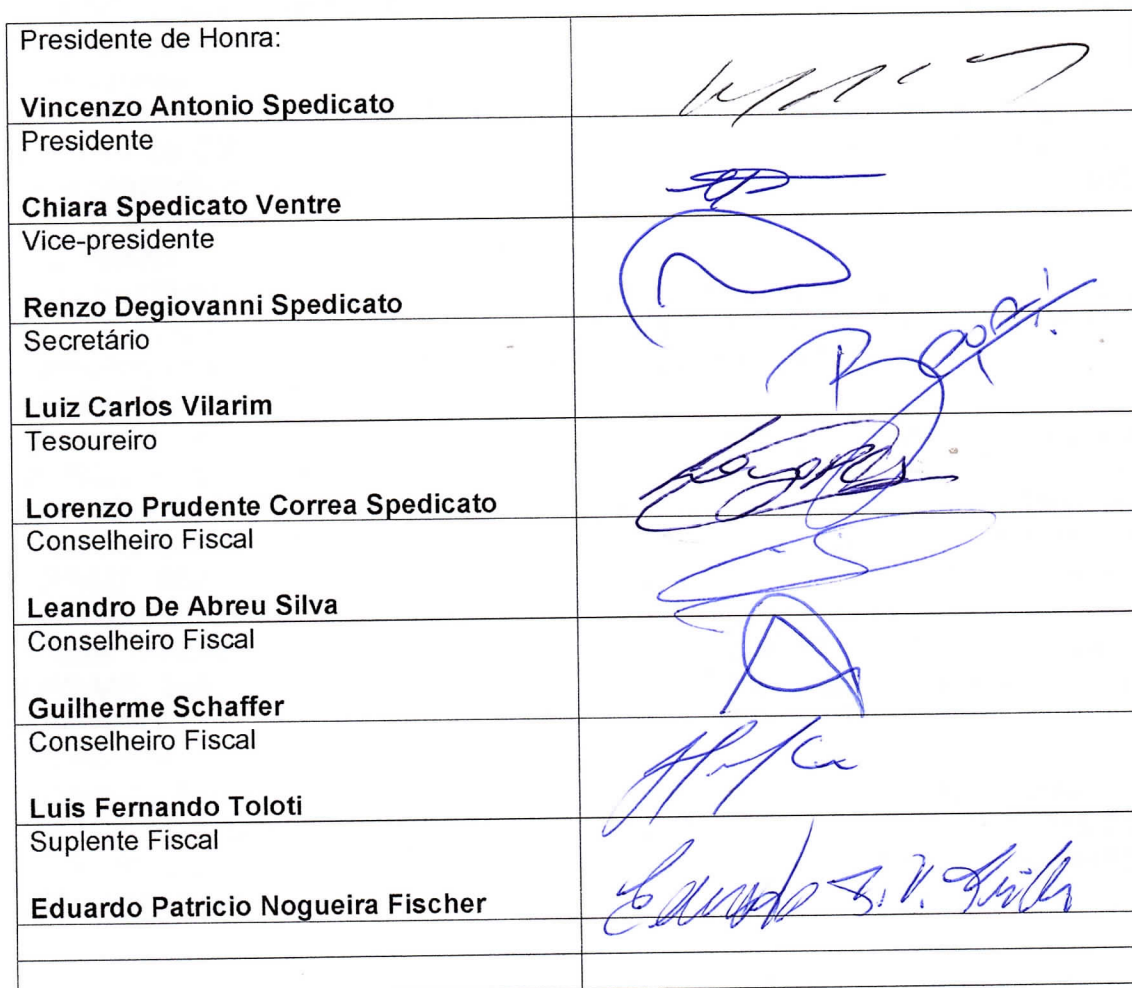 Presidente de Honra:
Vincenzo Antonio Spedicato
Presidente
Chiara Spedicato Ventre
Vice-presidente
Renzo Degiovanni Spedicato
Secretário
Luiz Carlos Vilarim
Tesoureiro
Lorenzo Prudente Correa Spedicato
Conselheiro Fiscal
Leandro De Abreu Silva
Conselheiro Fiscal
Guilherme Schaffer
Conselheiro Fiscal
Luis Fernando Toloti
Suplente Fiscal
Eduardo Patricio Nogueira Fischer